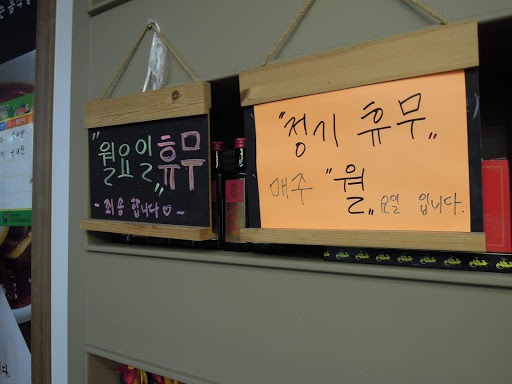 "월요일„ 휴무
- 죄송합니다♡ -
"정기 휴무„
매주 "월„요일 입니다.